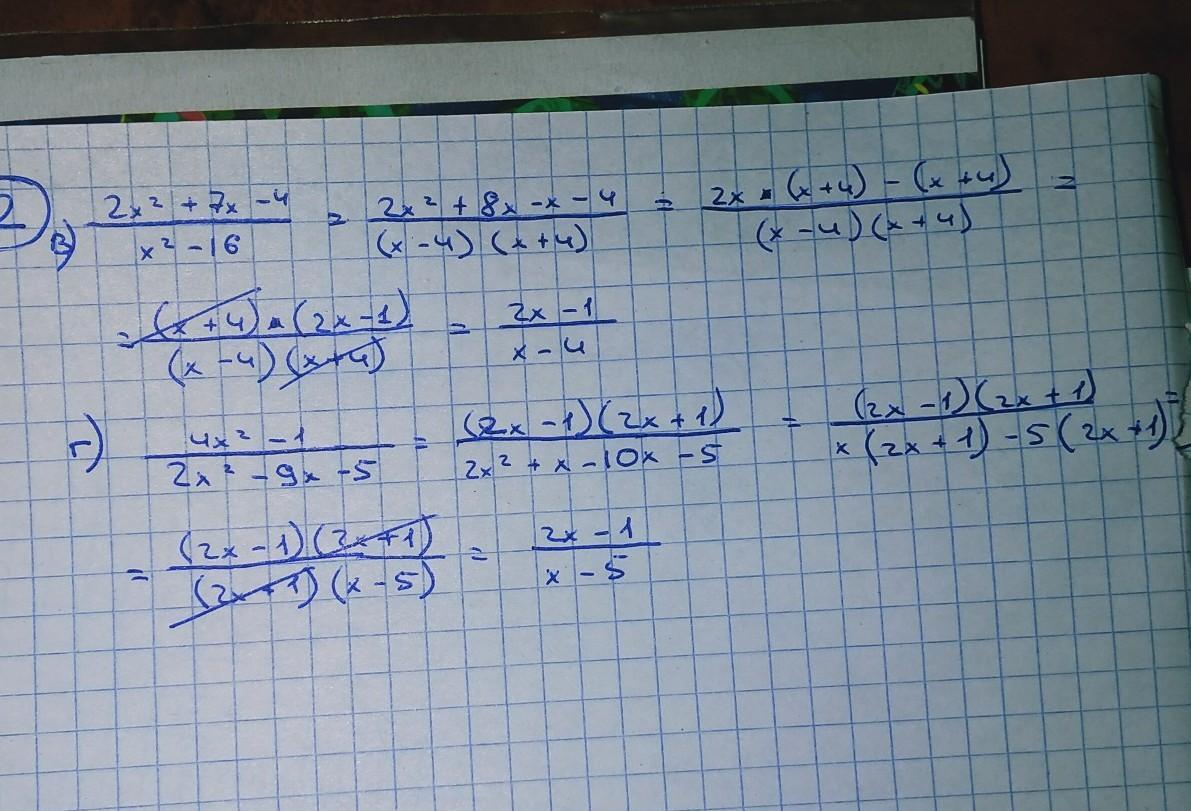 2
в) (2x² + 7x - 4)/(x² - 16) = (2x² + 8x - x - 4)/((x - 4)(x + 4)) = (2x · (x + 4) - (x + 4))/((x - 4)(x + 4)) =
= ((x + 4) · (2x - 1))/((x - 4)(x + 4)) = (2x - 1)/(x - 4)
г) (4x² - 1)/(2x² - 9x - 5) = ((2x - 1)(2x + 1))/(2x² + x - 10x - 5) = ((2x - 1)(2x + 1))/(x(2x + 1) - 5(2x + 1)) =
= ((2x - 1)(2x + 1))/((2x + 1)(x - 5)) = (2x - 1)/(x - 5)